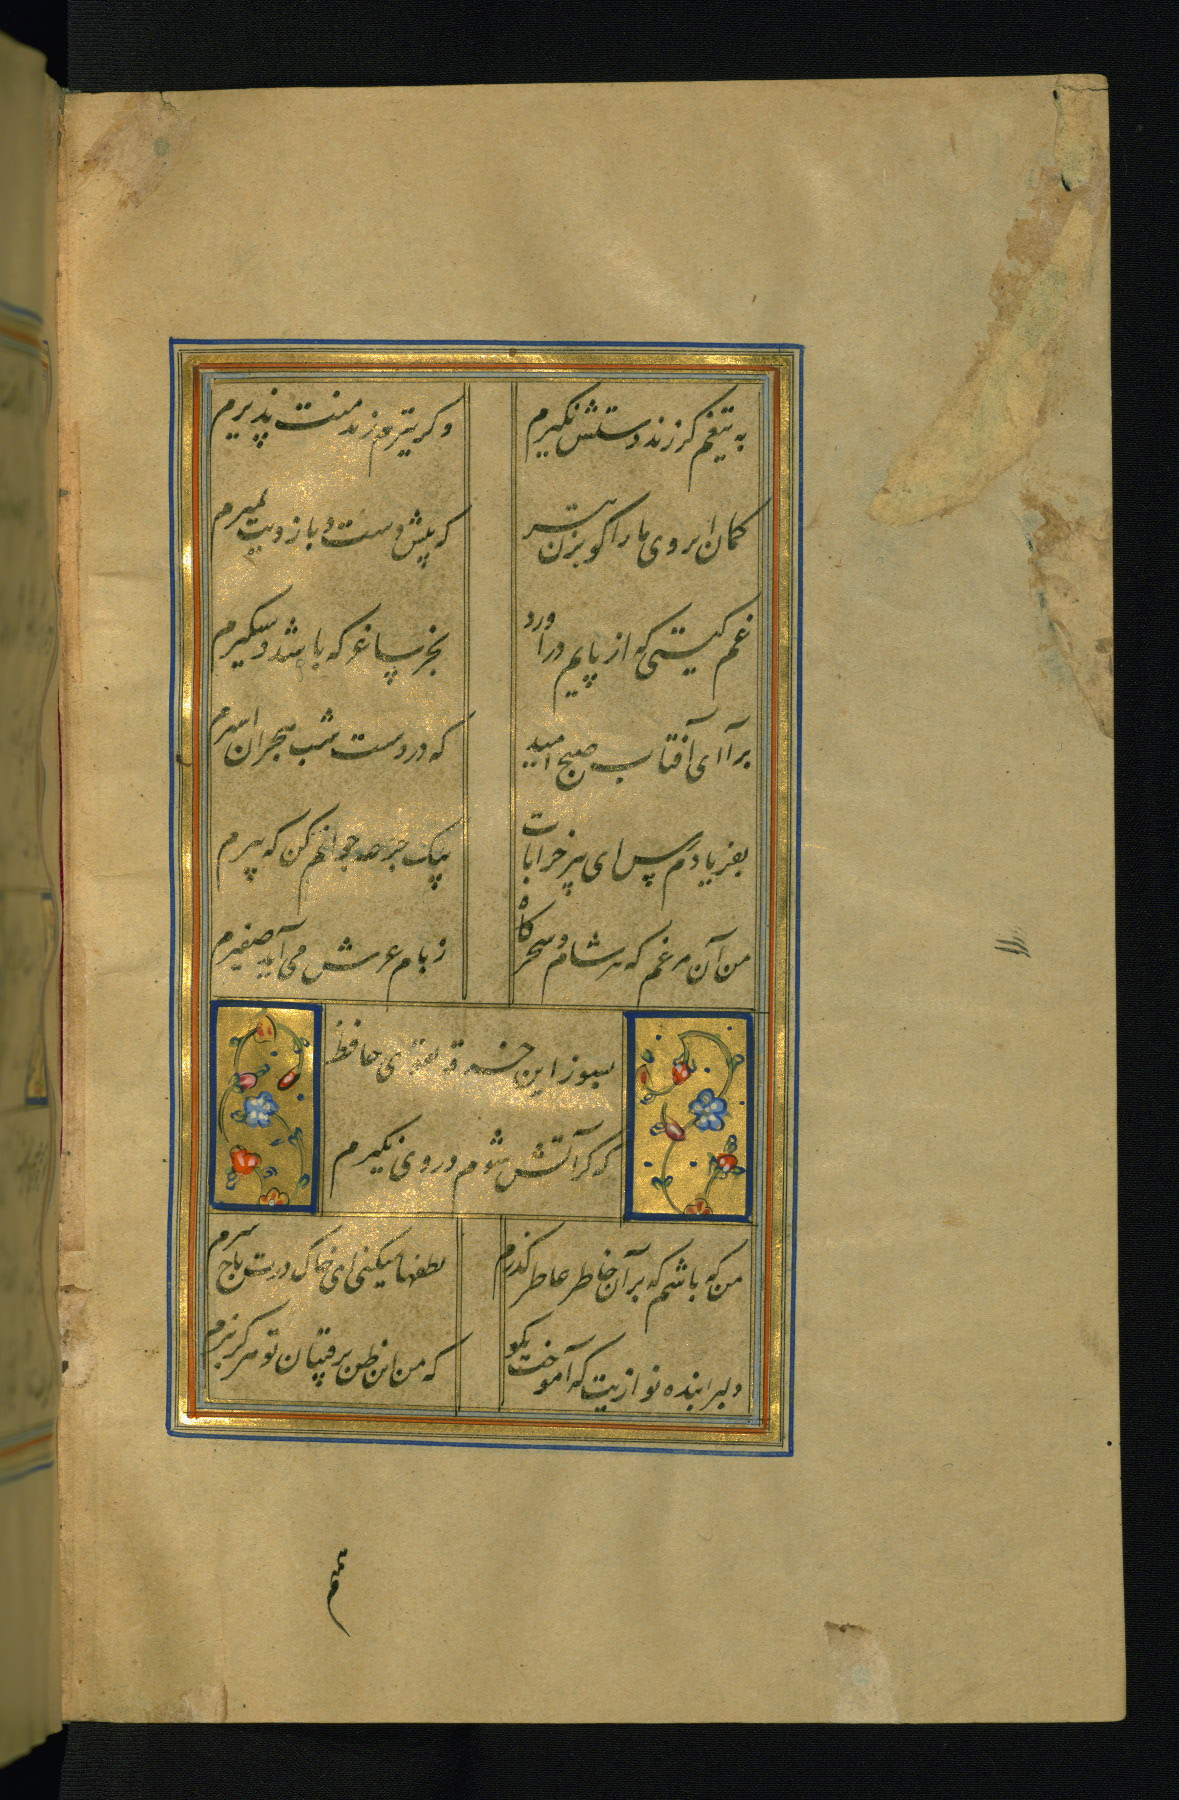 به تیغم کر زند دستش نکیرم
وکر تیرم زند منت پذیرم
کمان ابروی ما را کو بزن تیر
که پیش دست و بازویت بمیرم
غم کیتی که از پایم درآورد
بجز ساغر که باشد دستکیرم
برآ ای آفتاب صبح امید
که در دست شب هجران اسیرم
بفریادم رس ای پیر خرابات
بیک جرعه جوانم کن که پیرم
من آن مرغم که هر شام و سحرکاه
ز بام عرش می آید صفیرم
بسوز این خرقه تقوی حافظ
که کر آتش شوم در وی نکیرم
من که باشم که بر آن خاطر عاطر کذرم
لطفها میکنی ای خاک درت تاج سرم
دلبرا بنده نوازیت که آموخت بکو
که من این ظن برقیبان تو هرکز نبرم